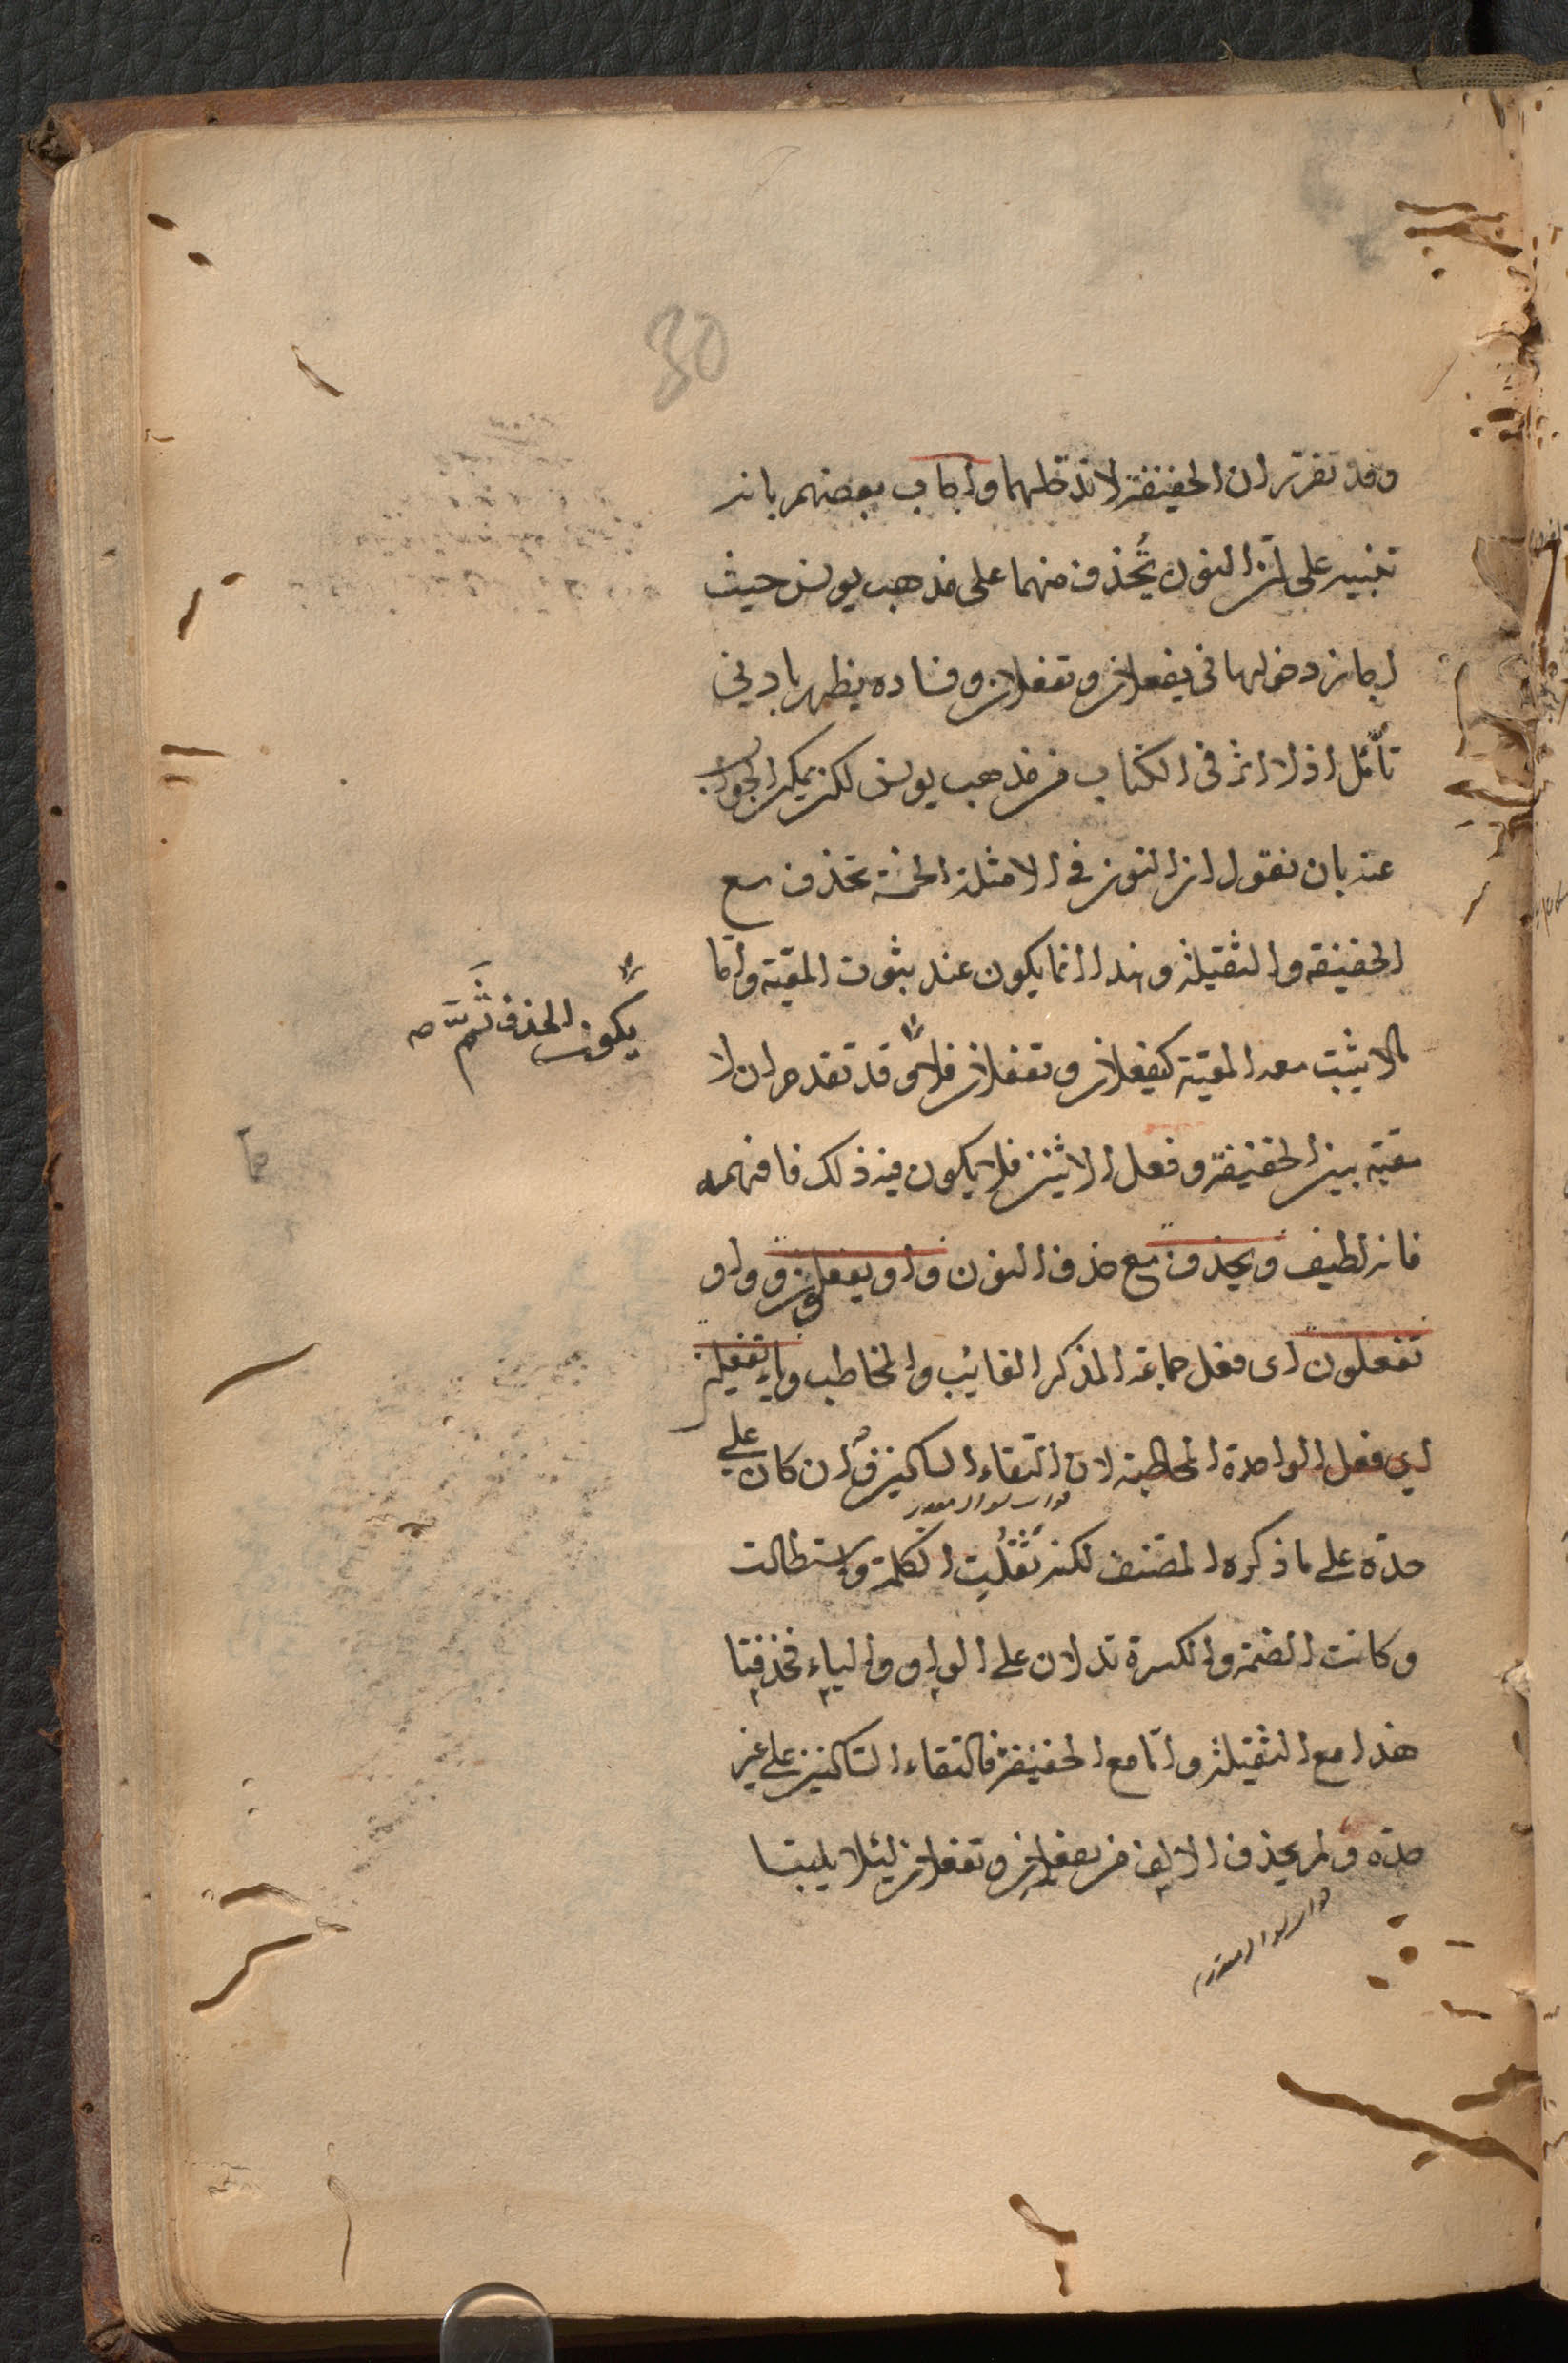 30
وقد تقرر ان الخفيفة لا تدخلهما واجاب بعضهم بانه
تنبيه على انّ النون تُحذف منهما على مذهب يونس حيث
اجاز دخولها فى يفعلان وتفعلان وفساده يظهر بادنى
تأمّل اذ لا اثر فى الكتاب من مذهب يونس لكن يمكن الجواب
عنه بان نقول ان النون في الامثلة الخمسة تحذف مع
الخفيفة والثقيلة وهذا انما يكون عند ثبوت المعيّة وامّا
ما لا يثبت معه المعيّة كيفعلان وتفعلان فلا وقد تقدم ان لا
يكون الحذف ثَمَّ صه
معيّة بين الخفيفة وفعل الاثنين فلا يكون فيه ذلك فافهمه
فانه لطيف ويحذف مع حذف النون واو يفعلون وواو
تفعلون اى فعل جماعة المذكر الغائب والمخاطب وياء تفعلين
اي فعل الواحدة المخاطبة لان التقاء الساكنين وان كان علي
حدّه على ما ذكره المصّنف لكنه ثَقُلَت الكلمة واستطالت
وكانت الضمة والكسرة تدلان على الواو والياء فحذفتا
هذا مع الثقيلة وامّا مع الخفيفة فالتقاء السّاكنين على غير
حدّه ولم يحذف الالف من يفعلان وتفعلان لئلا يلتبسا